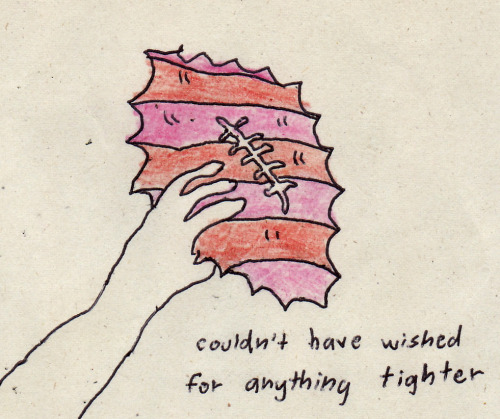 couldn't have wished
for anything tighter